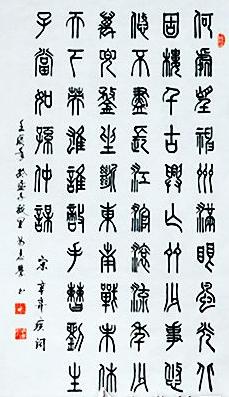 何處望神州滿眼風光北
固樓千古興亡多少事悠
悠不盡長江滾滾流年少
萬兜鍪坐斷東南戰未休
天下英雄誰敵手曹劉生
子當如孫仲謀
宋辛棄疾詞